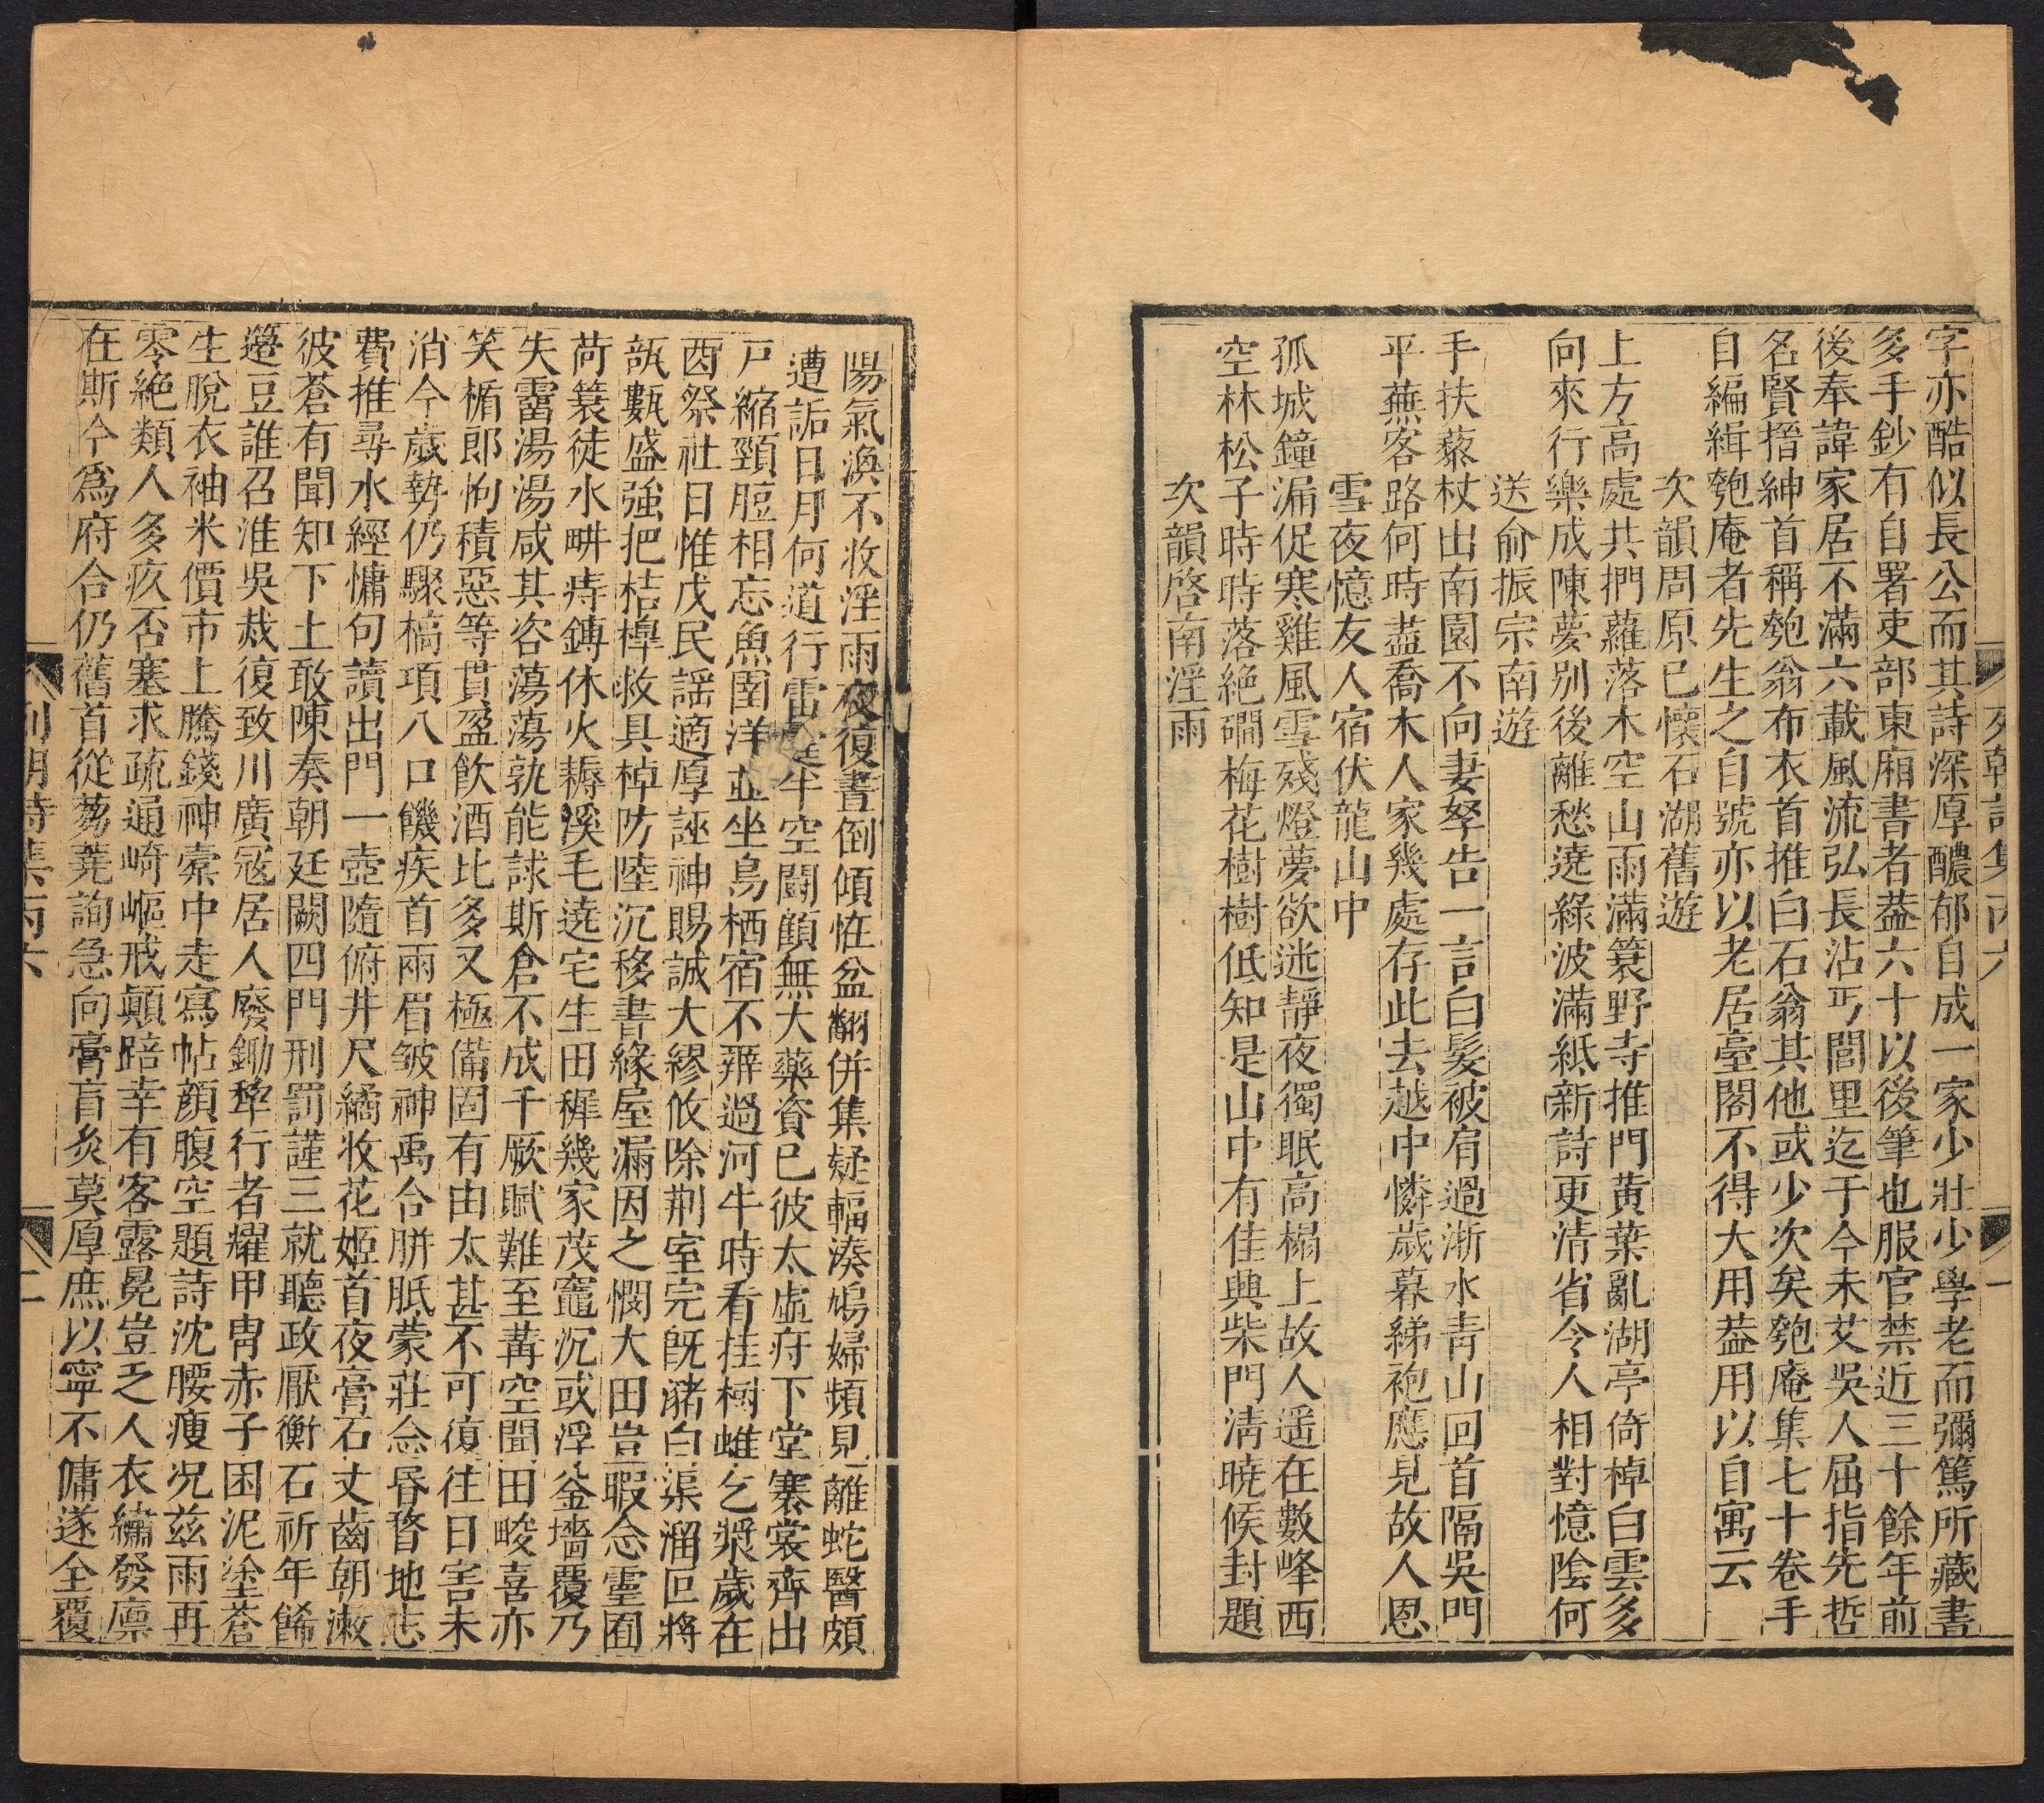 字亦酷似長公而其詩深厚醲郁自成一家少壯少學老而彌篤所藏書
多手鈔有自署吏部東廂書者葢六十以後筆也服官禁近三十餘年前
後奉諱家居不滿六載風流弘長沾丐閭里迄于今未艾吳人屈指先哲
名賢搢紳首稱匏翁布衣首推白石翁其他或少次矣匏庵集七十卷手
自編緝匏庵者先生之自號亦以老居臺閣不得大用葢用以自寓云
次韻周原已懷石湖舊遊
上方高處共捫蘿落木空山雨滿簑野寺推門黃葉亂湖亭倚棹白雲多
向來行樂成陳夢別後離愁遶綠波滿紙新詩更清省令人相對憶陰何
送俞振宗南遊
手扶藜杖出南園不向妻孥告一言白髮被肩過浙水青山回首隔吳門
平蕪客路何時盡喬木人家幾處存此去越中憐歲暮綈袍應見故人恩
雪夜憶友人宿伏龍山中
孤城鐘漏促寒雞風雪殘燈夢欲迷靜夜獨眠高榻上故人遥在數峰西
空林松子時時落絶磵梅花樹樹低知是山中有佳興柴門清曉候封題
次韻啓南淫雨
陽氣渙不收淫雨夜復晝倒傾恠盆翻併集疑輻湊鳩婦頻見離蛇醫頗
遭詬日月何道行雷霆半空鬬顧無大藥資已彼太虛疛下堂褰裳齊出
戸縮頸脰相忘魚圉洋並坐鳥栖宿不辨過河牛時看挂樹蜼乞漿歲在
酉祭社日惟戊民謡適厚誣神賜誠大繆攸除荆室完旣豬白渠溜叵將
瓿甊盛強把桔橰救具棹防陸沉移書緣屋漏因之憫大田豈暇念靈囿
荷簑徒水畊痔鎛休火耨溪毛遶宅生田穉幾家茂竈沉或浮釜墻覆乃
失霤湯湯咸其咨蕩蕩孰能詠斯倉不成千厥賦難至冓空聞田畯喜亦
笑楯郎怐積惡等貫盈飲酒比多又極備固有由太甚不可復往日害未
消今歲勢仍驟槁項八口饑疾首兩眉皱神禹合胼胝蒙莊念昏瞀地志
費推尋水經慵句讀出門一壺隨俯井尺繘收花姬首夜膏石丈齒朝漱
彼蒼有聞知下土敢陳奏朝廷闢四門刑罰謹三就聽政厭衡石祈年餙
籩豆誰召淮吳烖復致川廣寇居人廢鋤犂行者耀甲冑赤子困泥塗蒼
生脫衣袖米價市上騰錢神槖中走寫帖顔腹空題詩沈腰瘦况兹雨再
零絶類人多疚否塞求疏通崎嶇戒顚踣幸有客露冕豈乏人衣繡發廪
在斯今爲府合仍舊首從芻蕘詢急向膏肓灸莫厚庶以寧不傭遂全覆
列朝詩集丙六
二